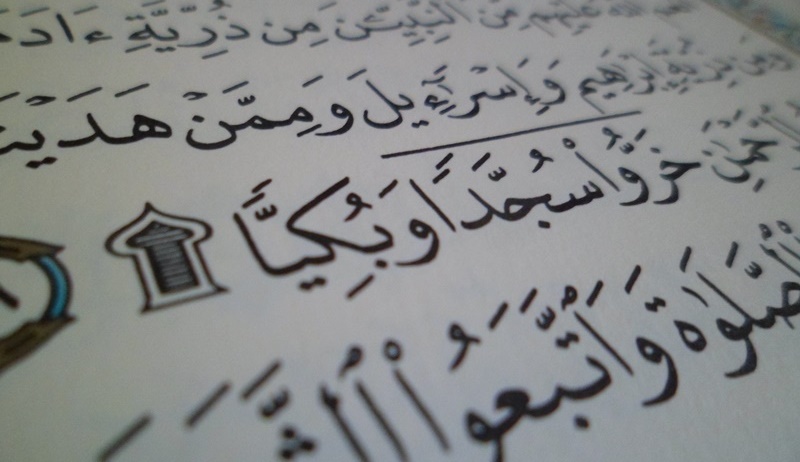 عَلَيْهِم مِّنَ ٱلنَّبِيِّـۧنَ مِن ذُرِّيَّةِ ءَادَمَ
وَمِن ذُرِّيَّةِ إِبْرَٰهِيمَ وَإِسْرَٰٓءِيلَ وَمِمَّنْ هَدَيْنَا
خَرُّوا۟ سُجَّدًا وَبُكِيًّا ۩
ٱلصَّلَوٰةَ وَٱتَّبَعُوا۟